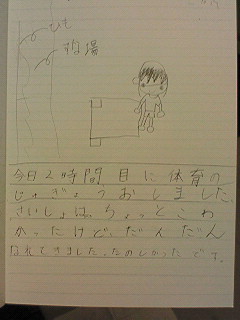 ひも
的場
今日2時間目に体育の
じゅぎょうおしました。
さいしょは、ちょっとこわ
かったけど、だんだん
なれてきました。たのしかったです。